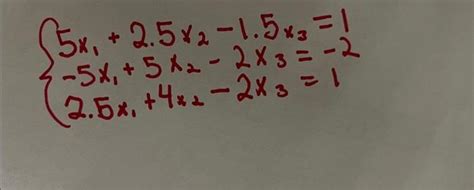 5x₁ + 2.5x₂ - 1.5x₃ = 1
-5x₁ + 5x₂ - 2x₃ = -2
2.5x₁ + 4x₂ - 2x₃ = 1